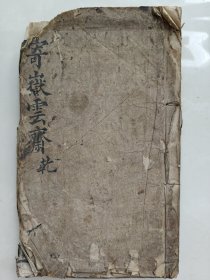 寄嶽雲齋 乾